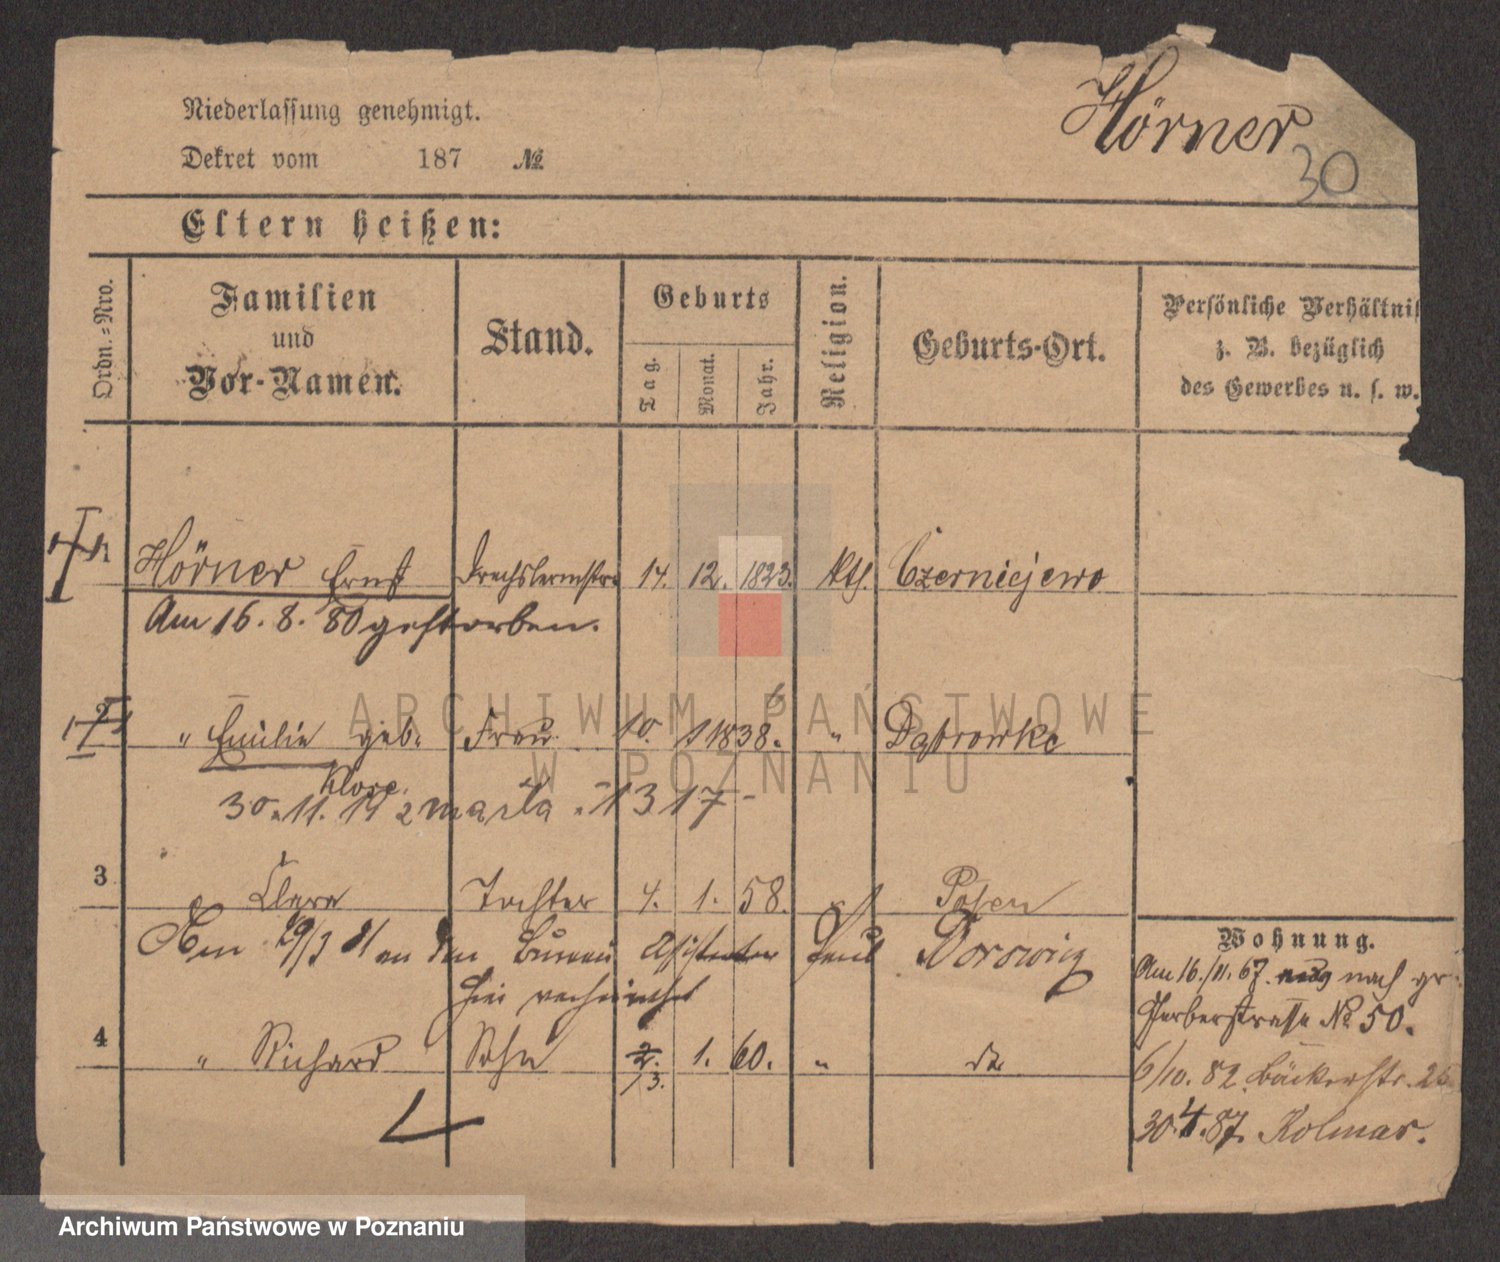 Niederlassung genehmigt.
Hörner
Dekret vom 187 №
30
Eltern heißen:
Ordn.=Nro.
Familien
und
Vor-Namen.
Stand.
Geburts
Tag.
Monat.
Jahr.
Religion.
Geburts-Ort.
Persönliche Verhältnis
z. B. bezüglich
des Gewerbes u. s. w.
1 Hörner Ernst Drechslermstr. 14. 12. 1823. kth. Czerniejewo
Am 16. 8. 80 gestorben.
" Emilie geb. Frau 10. 1838. " Dąbrowke
Klose.
30. 11. 19 1317 -
3 Clara Tochter 4. 1. 58. Posen
Am 29/3 81 an den Bureau Assistenten Paul
hier
4 " Richard Sohn 2. 1. 60. " do
13.
4
Wohnung.
Am 16./11. 67. nach gr
Gerberstrasse № 50.
6/10. 82. Bäckerstr. 26
30. 4. 87. Kolmar.
ARCHIWUM PAŃSTWOWE
W POZNANIU
Archiwum Państwowe w Poznaniu